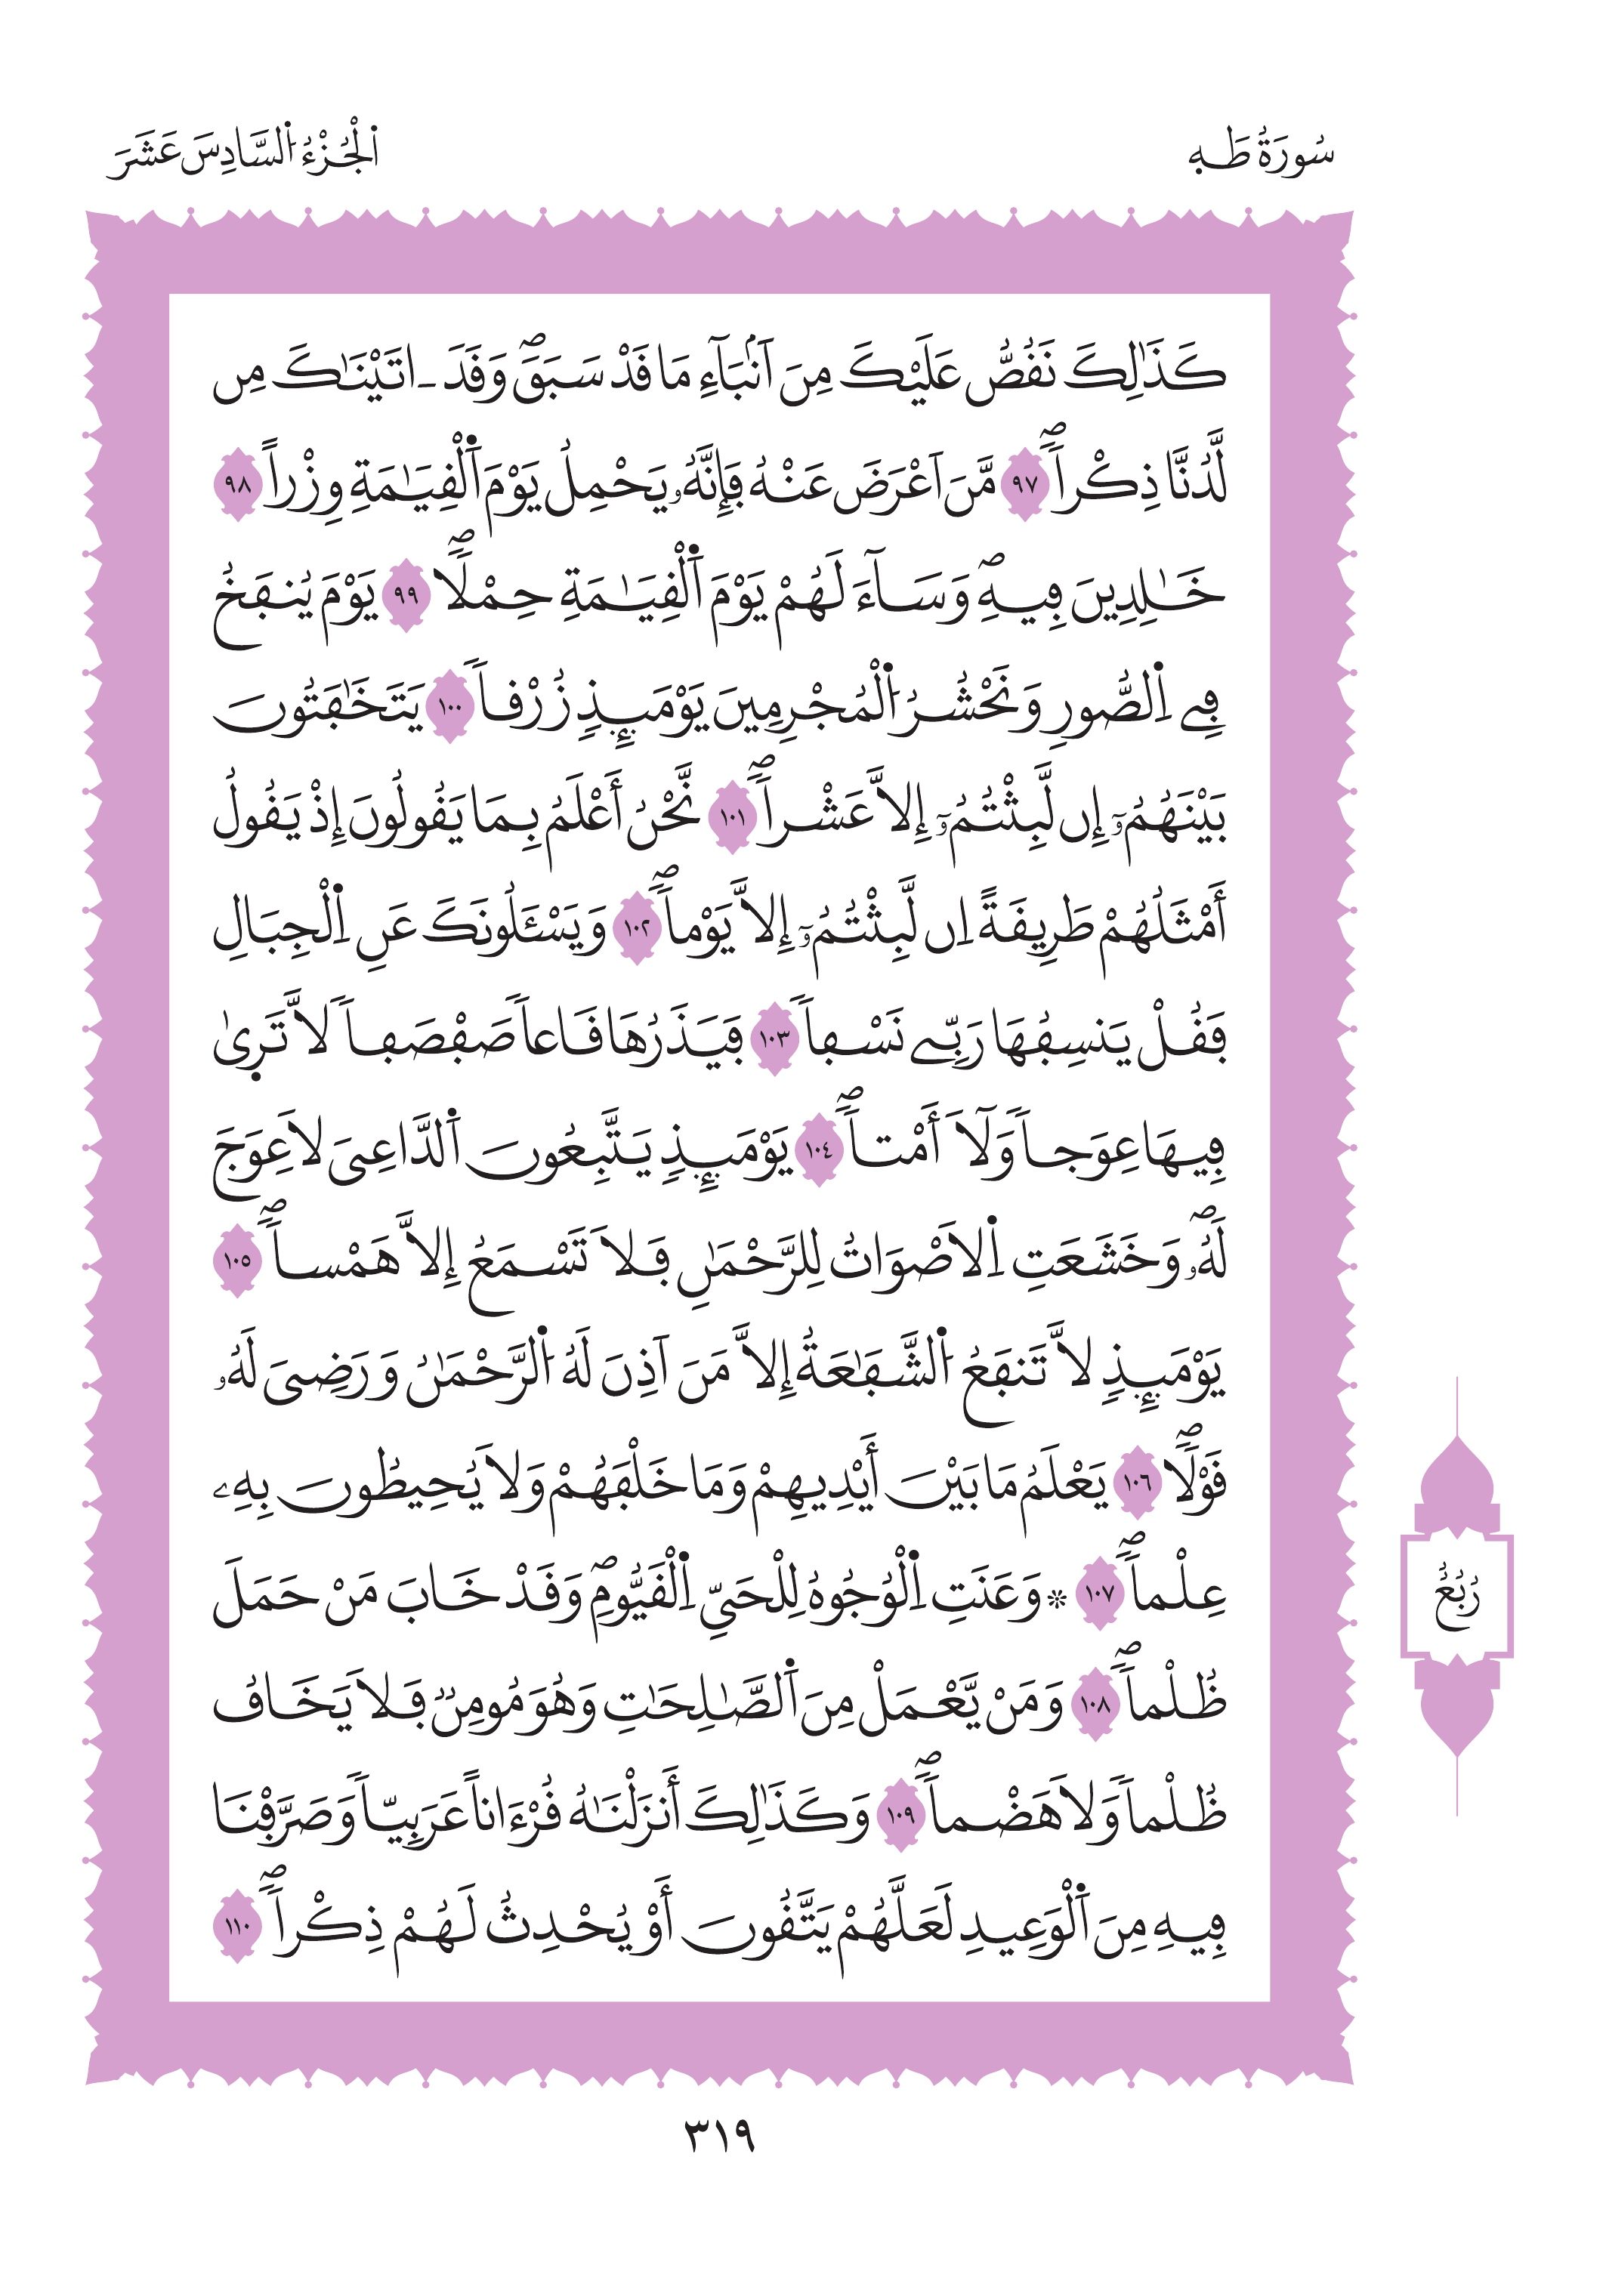 سُورَةُ طَهِ
اَ۬لْجُزْءُ اُ۬لسَّادِسَ عَشَرَ
كَذَٰلِكَ نَقُصُّ عَلَيْكَ مِنَ اَنۢبَآءِ مَا قَدْ سَبَقَۖ وَقَدَ ـ اتَيْنَٰكَ مِن
لَّدُنَّا ذِكْراٗۖ ٩٧ مَّنَ اَعْرَضَ عَنْهُ فَإِنَّهُۥ يَحْمِلُ يَوْمَ اَ۬لْقِيَٰمَةِ وِزْراً ٩٨
خَٰلِدِينَ فِيهِۖ وَسَآءَ لَهُمْ يَوْمَ اَ۬لْقِيَٰمَةِ حِمْلاٗۖ ٩٩ يَوْمَ يُنفَخُ
فِے اِ۬لصُّورِ وَنَحْشُرُ اُ۬لْمُجْرِمِينَ يَوْمَئِذٖ زُرْقاٗ ١٠٠ يَتَخَٰفَتُونَ
بَيْنَهُمُۥٓ إِن لَّبِثْتُمُۥٓ إِلاَّ عَشْراٗۖ ١٠١ نَّحْنُ أَعْلَمُ بِمَا يَقُولُونَ إِذْ يَقُولُ
أَمْثَلُهُمْ طَرِيقَةً اِن لَّبِثْتُمُۥٓ إِلاَّ يَوْماٗۖ ١٠٢ وَيَسْـَٔلُونَكَ عَنِ اِ۬لْجِبَالِ
فَقُلْ يَنسِفُهَا رَبِّے نَسْفاٗ ١٠٣ فَيَذَرُهَا قَاعاٗ صَفْصَفاٗ لاَّ تَر۪ىٰ
فِيهَا عِوَجاٗ وَلَآ أَمْتاٗۖ ١٠٤ يَوْمَئِذٖ يَتَّبِعُونَ اَ۬لدَّاعِيَ لاَ عِوَجَ
لَهُۥۖ وَخَشَعَتِ اِ۬لَاصْوَاتُ لِلرَّحْمَٰنِ فَلاَ تَسْمَعُ إِلاَّ هَمْساٗۖ ١٠٥
يَوْمَئِذٖ لاَّ تَنفَعُ اُ۬لشَّفَٰعَةُ إِلاَّ مَنَ اَذِنَ لَهُ اُ۬لرَّحْمَٰنُ وَرَضِيَ لَهُۥ
قَوْلاٗۖ ١٠٦ يَعْلَمُ مَا بَيْنَ أَيْدِيهِمْ وَمَا خَلْفَهُمْ وَلاَ يُحِيطُونَ بِهِۦ
عِلْماٗۖ ١٠٧ ۞ وَعَنَتِ اِ۬لْوُجُوهُ لِلْحَيِّ اِ۬لْقَيُّومِۖ وَقَدْ خَابَ مَنْ حَمَلَ
ظُلْماٗۖ ١٠٨ وَمَنْ يَّعْمَلْ مِنَ اَ۬لصَّٰلِحَٰتِ وَهُوَ مُومِنٞ فَلاَ يَخَافُ
ظُلْماٗ وَلاَ هَضْماٗۖ ١٠٩ وَكَذَٰلِكَ أَنزَلْنَٰهُ قُرْءَاناً عَرَبِيّاٗ وَصَرَّفْنَا
فِيهِ مِنَ اَ۬لْوَعِيدِ لَعَلَّهُمْ يَتَّقُونَ أَوْ يُحْدِثُ لَهُمْ ذِكْراٗۖ ١١٠
رُبُعُ
٣١٩